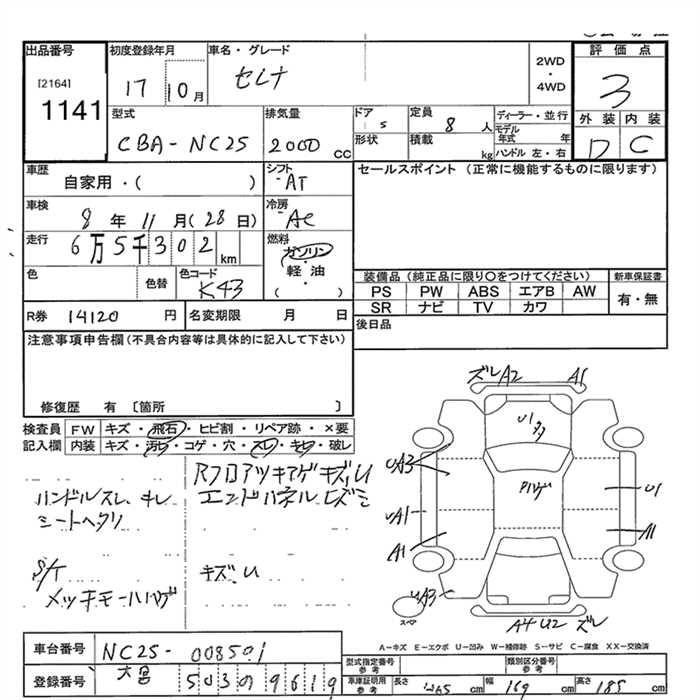 出品番号
[2164]
1141
初度登録年月
17 10月
車名・グレード
セレナ
2WD
・
4WD
評価点
3
外装 内装
D C
型式
CBA-NC25
排気量
2000 cc
ドア
5
形状
定員
8 人
積載
kg
ディーラー・並行
モデル
年式 年
ハンドル 左・右
車歴
自家用・( )
シフト
AT
車検
8年 11月(28日)
冷房
AC
走行
6万5千302km
燃料
ガソリン
・
軽油
・
( )
色
色替
色コード
K43
R券 14120円
名変期限 月 日
セールスポイント (正常に機能するものに限ります)
装備品(純正品に限り○をつけてください)
PS PW ABS エアB AW
SR ナビ TV カワ
新車保証書
有・無
後日品
注意事項申告欄(不具合内容等は具体的に記入して下さい)
修復歴 有〔箇所 〕
検査員
記入欄
FW キズ・飛石・ヒビ割・リペア跡・×要
内装 キズ・汚れ・コゲ・穴・スレ・キレ・破レ
ハンドルスレ、キレ
シートヘタリ
S/T
メッキモールハゲ
Rフロアツキアゲキズ、U
エンドパネルヒズミ
キズ、U
ズレA2 A1
U1
UA3
U1
UA1
A1
A1
UA3
スペア
A4U2 ズレ
A－キズ E－エクボ U－凹み W－補修跡 S－サビ C－腐食 XX－交換済
車台番号 NC25-008501
登録番号 大宮 503 の 9619
型式指定番号
参考
類別区分番号
参考
車庫証明用
参考
長さ 465cm 幅 169cm 高さ 185cm